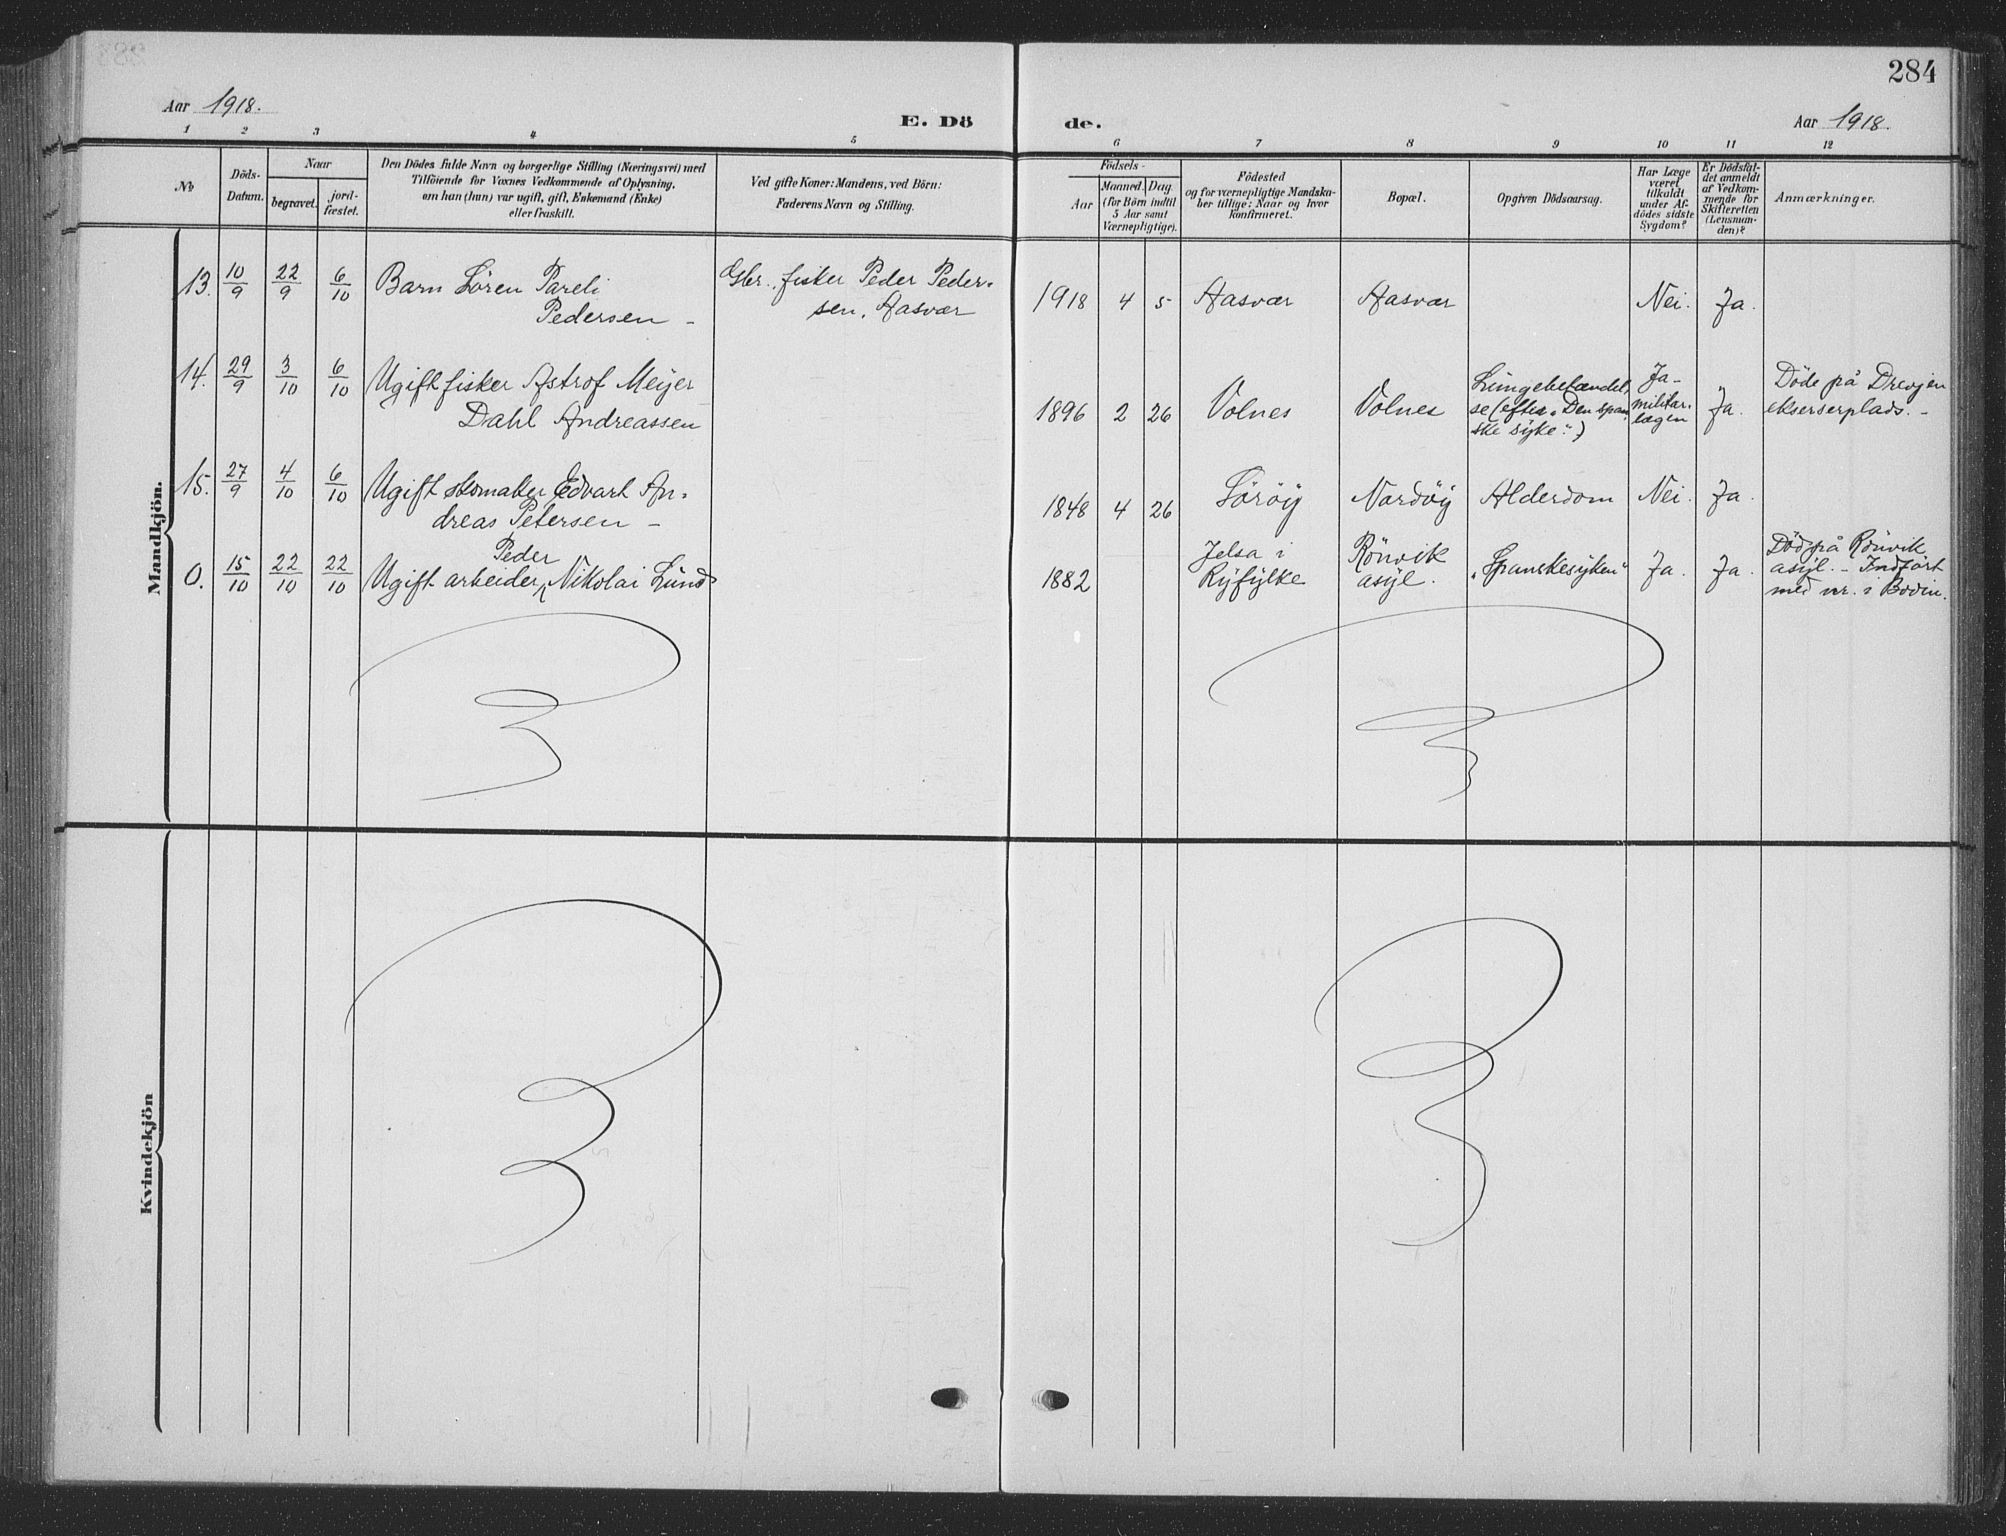 284
Aar 1918.
E. Dö
de.
Aar 1918.
1 2 3 4 5 6 7 8 9 10 11 12
No
Döds-
Datum.
Naar
begravet.
jord-
fæstet.
Den Dödes fulde Navn og borgerlige Stilling (Næringsvei) med
Tilföiende for Voxnes Vedkommende af Oplysning,
om han (hun) var ugift, gift, Enkemand (Enke)
eller fraskilt.
Ved gifte Koner: Mandens, ved Börn:
Faderens Navn og Stilling.
Födsels-
Aar
Maaned. Dag.
(for Börn indtil
5 Aar samt
Værnepligtige).
Födested
og for værnepligtige Mandska-
ber tillige: Naar og hvor
konfirmeret.
Bopæl.
Opgiven Dödsaarsag.
Har Læge
været
tilkaldt
under Af-
dödes sidste
Sygdom?
Er Dödsfal-
det anmeldt
af Vedkom-
mende for
Skifteretten
(Lensman-
den)?
Anmærkninger.
Mandkjön.
13. 10/9 22/9 6/10 Barn Sören Pareli
Pedersen –
Gbr., fisker Peder Peder-
sen, Aasvær
1918 4 5 Aasvær Aasvær Nei. Ja.
14. 29/9 3/10 6/10 Ugift fisker Astrof Meyer
Dahl Andreassen
1896 2 26 Volnes Volnes
Lungebetændel-
se (efter "Den span-
ske syke".)
Ja-
militær-
lægen
Ja.
Döde på Drevjen
ekserserplads. –
15. 27/9 4/10 6/10 Ugift skomaker Edvart An-
dreas Petersen –
1848 4 26 Söröy Nordöy Alderdom Nei. Ja.
0. 15/10 22/10 22/10 Ugift arbeider, Peder Nikolai Lund
1882
Jelsa i
Ryfylke
Rönvik
asyl.
"Spanskesyken" Ja. Ja.
Död på Rönvik
asyl. – Indfört
med nr. i Bodin.
Kvindekjön